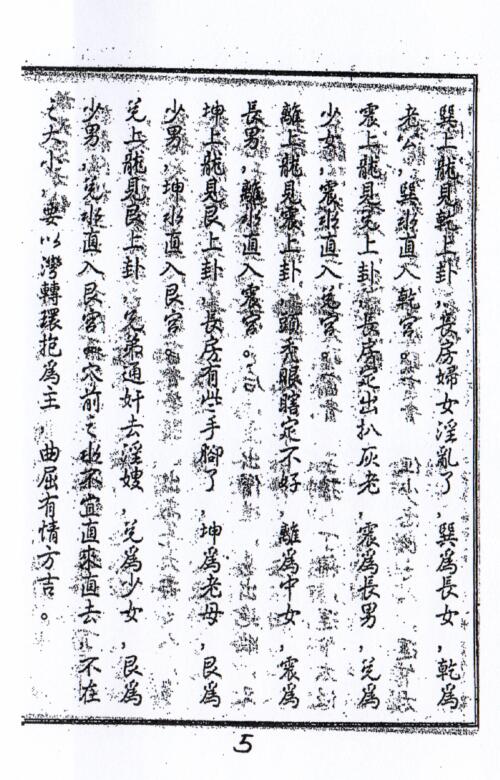 巽上龍見乾上卦,長房婦女淫亂了,巽為長女,乾為
老公,巽水直入乾宮。
震上龍見兌上卦,長房定出扒灰老,震為長男,兌為
少女,震水直入兌宮。
離上龍見震上卦,頭禿眼瞎定不好,離為中女,震為
長男,離水直入震宮。
坤上龍見艮上卦,長房有些手腳了,坤為老母,艮為
少男,坤水直入艮宮。
兌上龍見艮上卦,兄弟通奸去淫嫂,兌為少女,艮為
少男,兌水直入艮宮,穴前之水不宜直來直去,不在
之大小,要以灣轉環抱為主,曲屈有情方吉。
5